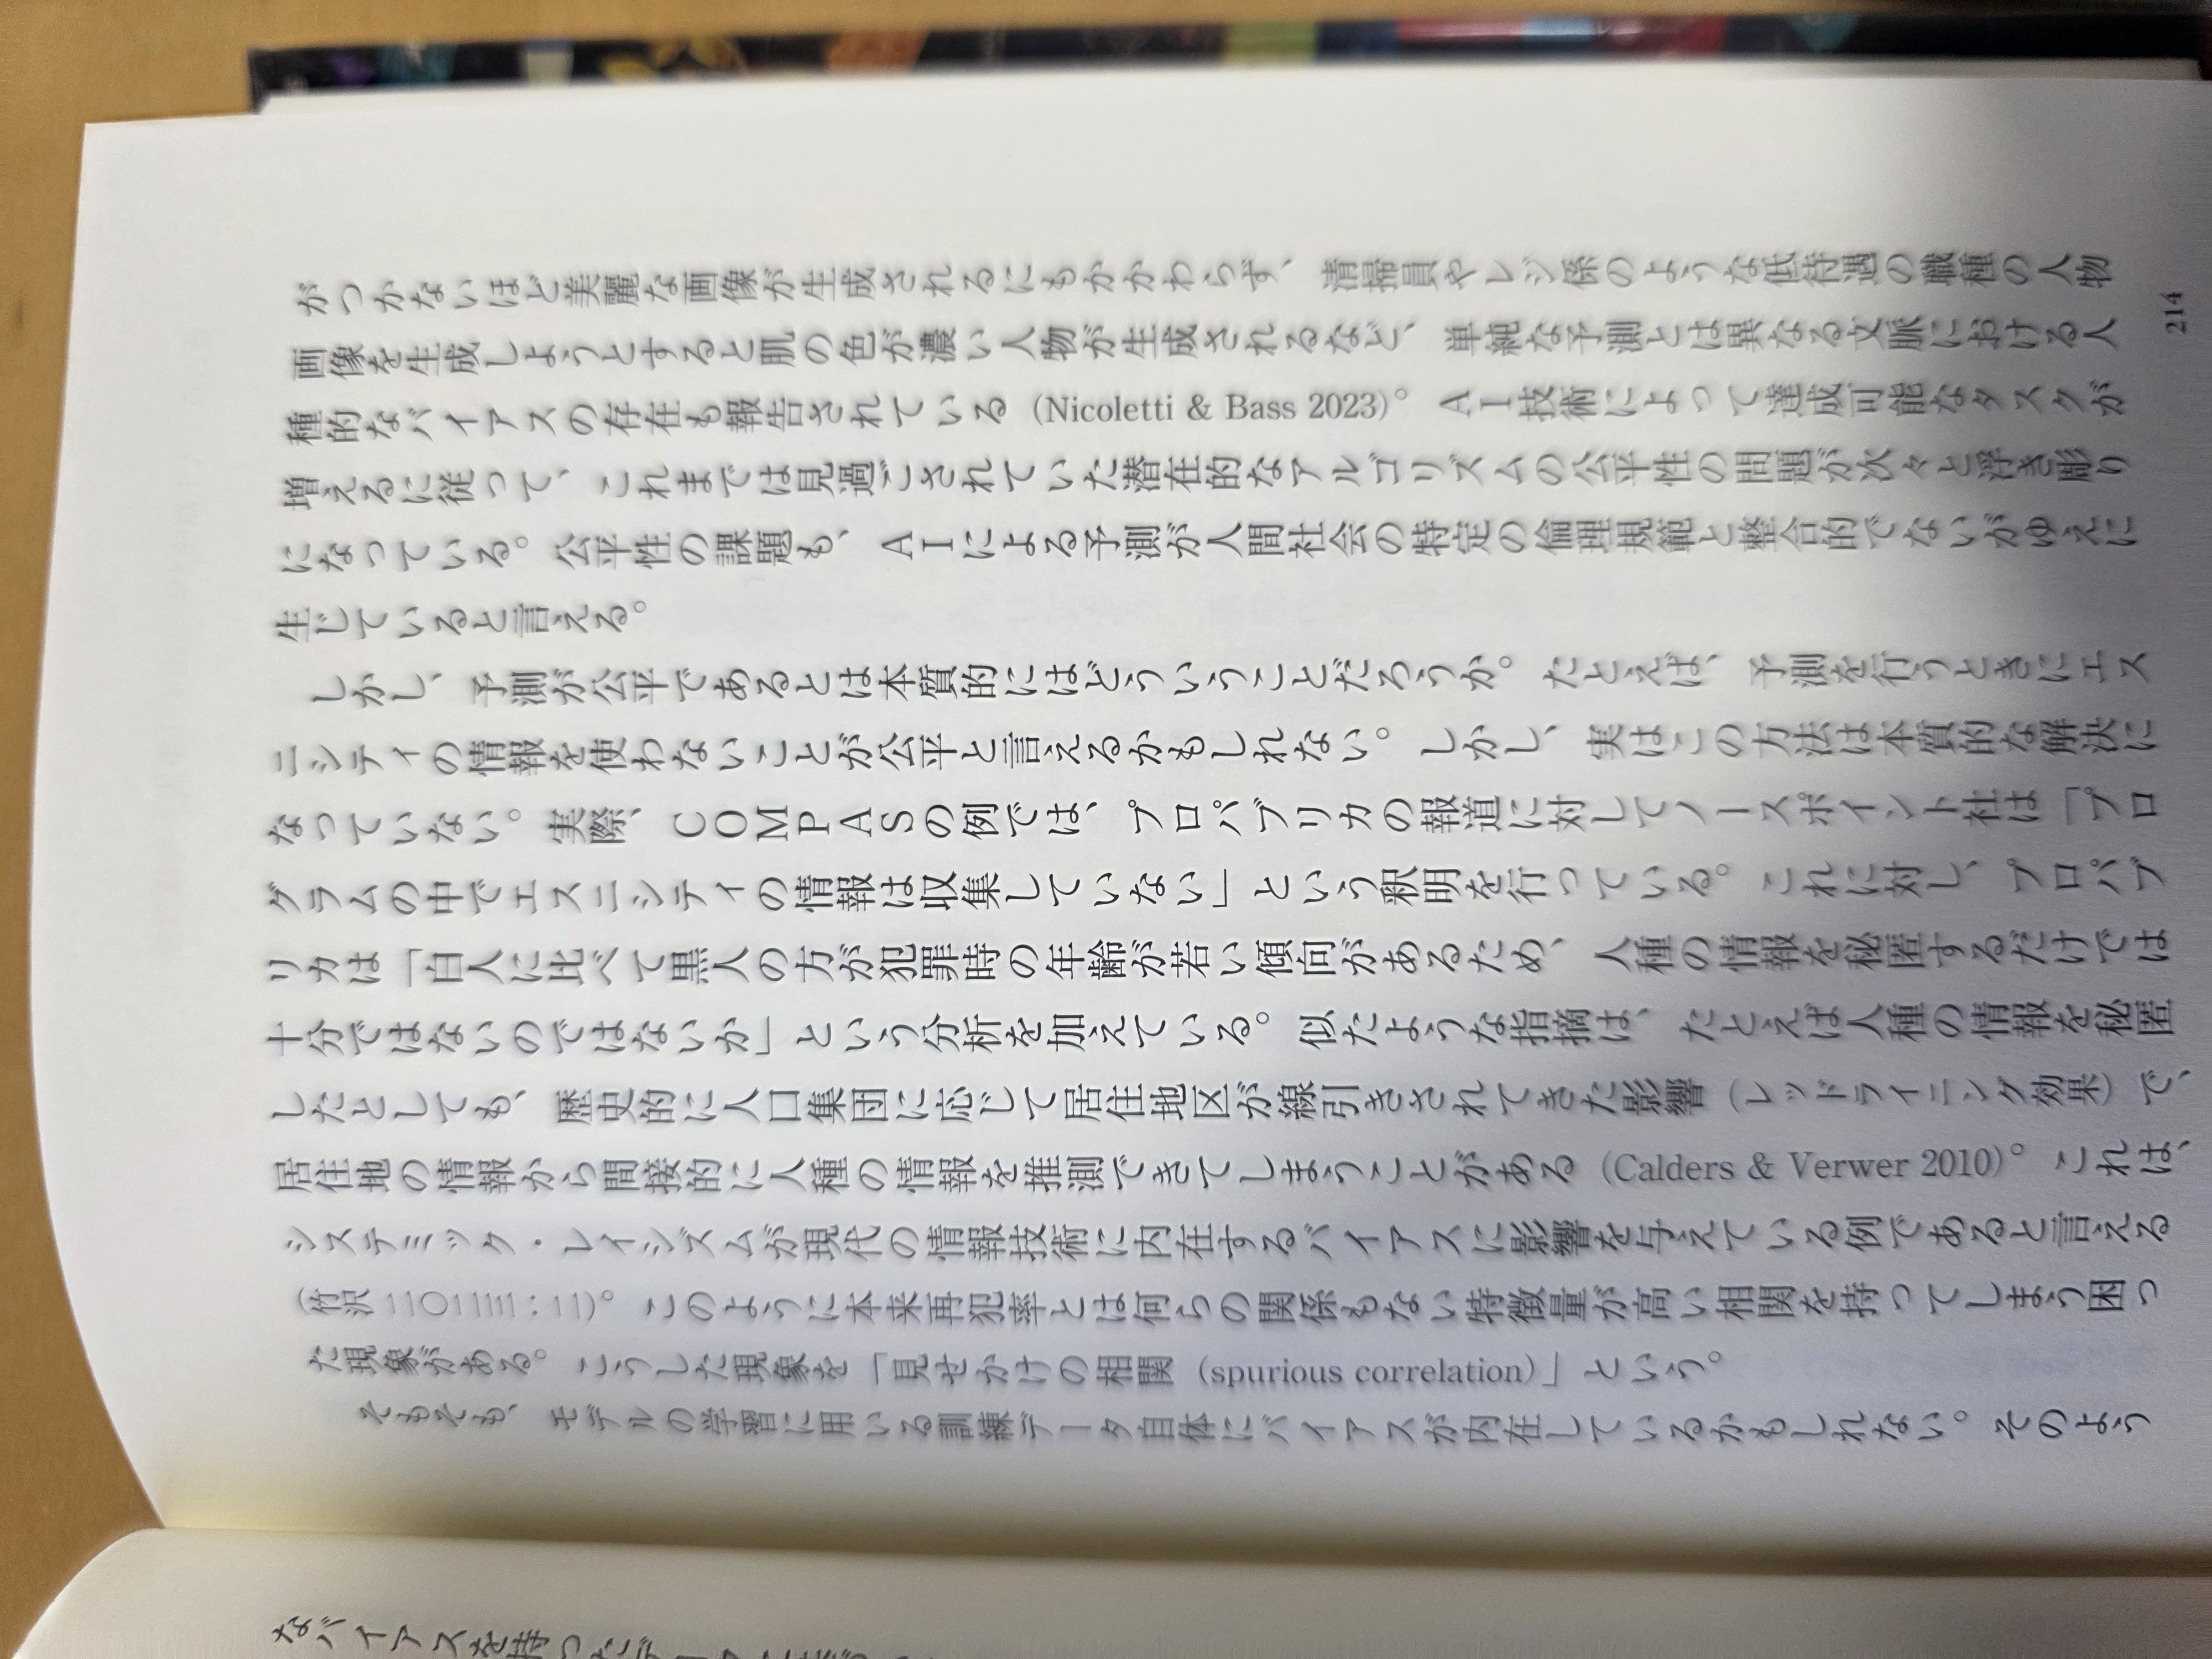 がつかないほど美麗な画像が生成されるにもかかわらず、清掃員やレジ係のような低待遇の職種の人物
画像を生成しようとすると肌の色が濃い人物が生成されるなど、単純な予測とは異なる文脈における人
種的なバイアスの存在も報告されている（Nicoletti & Bass 2023）。ＡＩ技術によって達成可能なタスクが
増えるに従って、これまでは見過ごされていた潜在的なアルゴリズムの公平性の問題が次々と浮き彫り
になっている。公平性の課題も、ＡＩによる予測が人間社会の特定の倫理規範と整合的でないがゆえに
生じていると言える。
しかし、予測が公平であるとは本質的にはどういうことだろうか。たとえば、予測を行うときにエス
ニシティの情報を使わないことが公平と言えるかもしれない。しかし、実はこの方法は本質的な解決に
なっていない。実際、ＣＯＭＰＡＳの例では、プロパブリカの報道に対してノースポイント社は「プロ
グラムの中でエスニシティの情報は収集していない」という釈明を行っている。これに対し、プロパブ
リカは「白人に比べて黒人の方が犯罪時の年齢が若い傾向があるため、人種の情報を秘匿するだけでは
十分ではないのではないか」という分析を加えている。似たような指摘は、たとえば人種の情報を秘匿
したとしても、歴史的に人口集団に応じて居住地区が線引きされてきた影響（レッドライニング効果）で、
居住地の情報から間接的に人種の情報を推測できてしまうことがある（Calders & Verwer 2010）。これは、
システミック・レイシズムが現代の情報技術に内在するバイアスに影響を与えている例であると言える
（竹沢 二〇二三：二）。このように本来再犯率とは何らの関係もない特徴量が高い相関を持ってしまう困っ
た現象がある。こうした現象を「見せかけの相関（spurious correlation）」という。
そもそも、モデルの学習に用いる訓練データ自体にバイアスが内在しているかもしれない。そのよう
214
なバイアスを持ったデータ